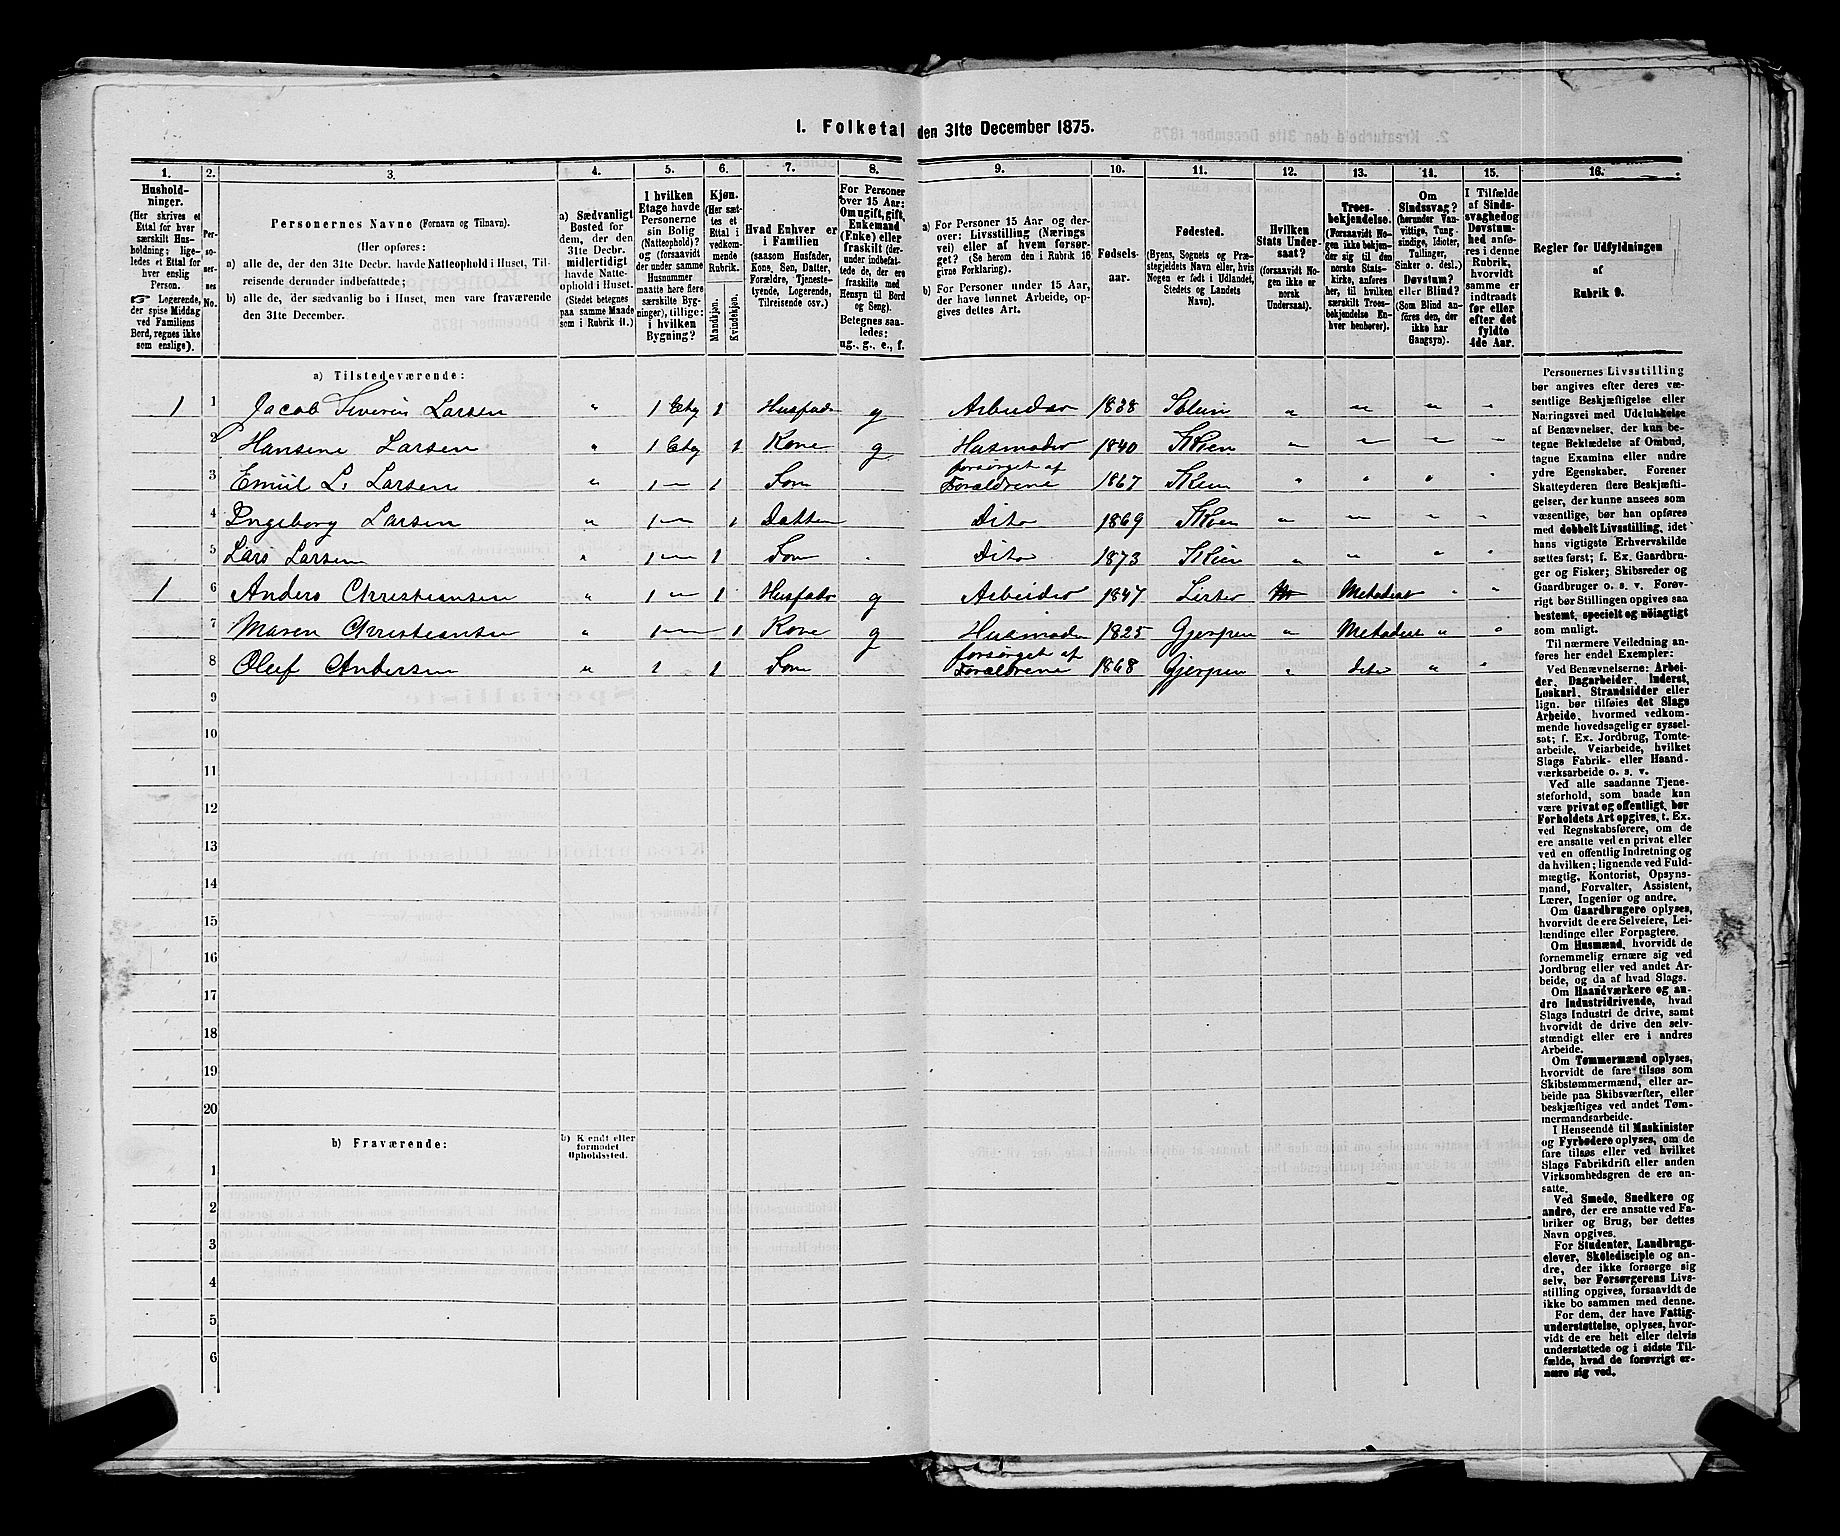 1. Folketal den 31te December 1875.
1. 2. 3. 4. 5. 6. 7. 8. 9. 10. 11. 12. 13. 14. 15. 16.
Hushold-
ninger.
(Her skrives et
Ettal for hver
særskilt Hus-
holdning; lige-
ledes et Ettal for
hver enslig
Person.
☞ Logerende,
der spise Middag
ved Familiens
Bord, regnes ikke
som enslige).
Per-
soner-
nes
No.
Personernes Navne (Fornavn og Tilnavn).
(Her opføres:
a) alle de, der den 31te Decbr. havde Natteophold i Huset, Til-
reisende derunder indbefattede;
b) alle de, der sædvanlig bo i Huset, men vare fraværende
den 31te December.
a) Sædvanligt
Bosted for
dem, der den
31te Decbr.
midlertidigt
havde Natte-
ophold i Huset.
(Stedet betegnes
paa samme Maade
som i Rubrik 11.)
I hvilken
Etage havde
Personerne
sin Bolig
(Natteophold)?
og (forsaavidt
der under samme
Husnummer
maatte høre flere
særskilte Byg-
ninger), tillige:
i hvilken
Bygning?
Kjøn.
(Her sæt-
tes et
Ettal i
vedkom-
mende
Rubrik.
Mandkjøn.
Kvindekjøn.
Hvad Enhver er
i Familien
(saasom Husfader,
Kone, Søn, Datter,
Forældre, Tjeneste-
tyende, Logerende,
Tilreisende osv.)
For Personer
over 15 Aar:
Om ugift, gift,
Enkemand
(Enke) eller
fraskilt (der-
under indbefat-
tede de, der ere
fraskilte med
Hensyn til Bord
og Seng).
Betegnes saa-
ledes:
ug., g., e., f.
a) For Personer 15 Aar og der-
over: Livsstilling (Nærings
vei) eller af hvem forsør-
get? (Se herom den i Rubrik 16
givne Forklaring).
b) For Personer under 15 Aar,
der have lønnet Arbeide, op-
gives dettes Art.
Fødsels-
aar.
Fødested.
(Byens, Sognets og Præ-
stegjeldets Navn eller, hvis
Nogen er født i Udlandet,
Stedets og Landets
Navn).
Hvilken
Stats Under-
saat?
(forsaavidt No-
gen ikke er
norsk
Undersaat).
Troes-
bekjendelse.
(Forsaavidt No-
gen ikke bekjen-
der sig til den
norske Stats-
kirke, anføres
her, til hvilken
særskilt Troes-
bekjendelse En-
hver henhører).
Om
Sindssvag?
(herunder Van-
vittige, Tung-
sindige, Idioter,
Tullinger,
Sinker o. desl.)
Døvstum?
eller Blind?
(Som Blind an-
føres den, der
ikke har
Gangsyn).
I Tilfælde
af Sinds-
svaghed og
Døvstum-
hed anfø-
res i denne
Rubrik,
hvorvidt
samme er
indtraadt
før eller
efter det
fyldte
4de Aar.
Regler for Udfyldningen
af
Rubrik 9.
a) Tilstedeværende:
1 1 Jacob Severin Larsen " 1 Etg 1 Husfader g Arbeider 1838 Skien " " " "
2 Hansene Larsen " 1 Etg 1 Kone g Husmoder 1840 Skien " " " "
3 Emiil L. Larsen " 1 — 1 Søn forsørget af Forældrene 1867 Skien " " "
4 Ingeborg Larsen " 1 — 1 Datter Dito 1869 Skien " " " "
5 Lars Larsen " 1 — 1 Søn Dito 1873 Skien " " " "
1 6 Anders Christiansen " 1 — 1 Husfader g Arbeider 1847 Lister Metodist " "
7 Maren Christiansen " 1 — 1 Kone g Husmoder 1825 Gjerpen " Metodist " "
8 Oluf Andersen " 1 1 Søn forsørget af Forældrene 1868 Gjerpen " dito " "
9
10
11
12
13
14
15
16
17
18
19
20
b) Fraværende:
b) Kjendt eller
formodet
Opholdssted.
1
2
3
4
5
6
Personernes Livsstilling
bør angives efter deres væ-
sentlige Beskjæftigelse eller
Næringsvei med Udelukkelse
af Benævnelser, der kun be-
tegne Beklædelse af Ombud,
tagne Examina eller andre
ydre Egenskaber. Forener
Skatteyderen flere Beskjæfti-
gelser, der kunne ansees som
væsentlige, bør han opføres
med dobbelt Livsstilling, idet
hans vigtigste Erhvervskilde
sættes først; f. Ex. Gaardbru-
ger og Fisker; Skibsreder og
Gaardbruger o. s. v. Forøv-
rigt bør Stillingen opgives saa
bestemt, specielt og nøiagtigt
som muligt.
Til nærmere Veiledning an-
føres her endel Exempler:
Ved Benævnelserne: Arbei-
der, Dagarbeider, Inderst,
Løskarl, Strandsidder eller
lign. bør tilføies det Slags
Arbeide, hvormed vedkom-
mende hovedsagelig er syssel-
sat; f. Ex. Jordbrug, Tomte-
arbeide, Veiarbeide, hvilket
Slags Fabrik- eller Haand-
værksarbeide o. s. v.
Ved alle saadanne Tjene-
steforhold, som baade kan
være privat og offentligt, bør
Forholdets Art opgives, t. Ex.
ved Regnskabsførere, om de
ere ansatte ved en privat eller
ved en offentlig Indretning og
da hvilken; lignende ved Fuld-
mægtig, Kontorist, Opsyns-
mand, Forvalter, Assistent,
Lærer, Ingeniør og andre.
Om Gaardbrugere oplyses,
hvorvidt de ere Selveiere, Lei-
lændinge eller Forpagtere.
Om Husmænd, hvorvidt de
fornemmelig ernære sig ved
Jordbrug eller ved andet Ar-
beide, og da af hvad Slags.
Om Haandværkere og an-
dre Industridrivende, hvad
Slags Industri de drive, samt
hvorvidt de drive den selv-
stændigt eller ere i andres
Arbeide.
Om Tømmermænd oplyses,
hvorvidt de fare tilsøs som
Skibstømmermænd, eller ar-
beide paa Skibsværfter, eller
beskjæftiges ved andet Tøm-
mermandsarbeide.
I Henseende til Maskinister
og Fyrbødere oplyses, om de
fare tilsøs eller ved hvilket
Slags Fabrikdrift eller anden
Virksomhedsgren de ere an-
satte.
Ved Smede, Snedkere og
andre, der ere ansatte ved Fa-
briker og Brug, bør dettes
Navn opgives.
For Studenter, Landbrugs-
elever, Skoledisciple og an-
dre, der ikke forsørge sig
selv, bør Forsørgerens Livs-
stilling opgives, forsaavidt de
ikke bo sammen med denne.
For dem, der have Fattig-
understøttelse, oplyses, hvor-
vidt de ere helt eller delvis
understøttede og i sidste Til-
fælde, hvad de forøvrigt er-
nære sig ved.